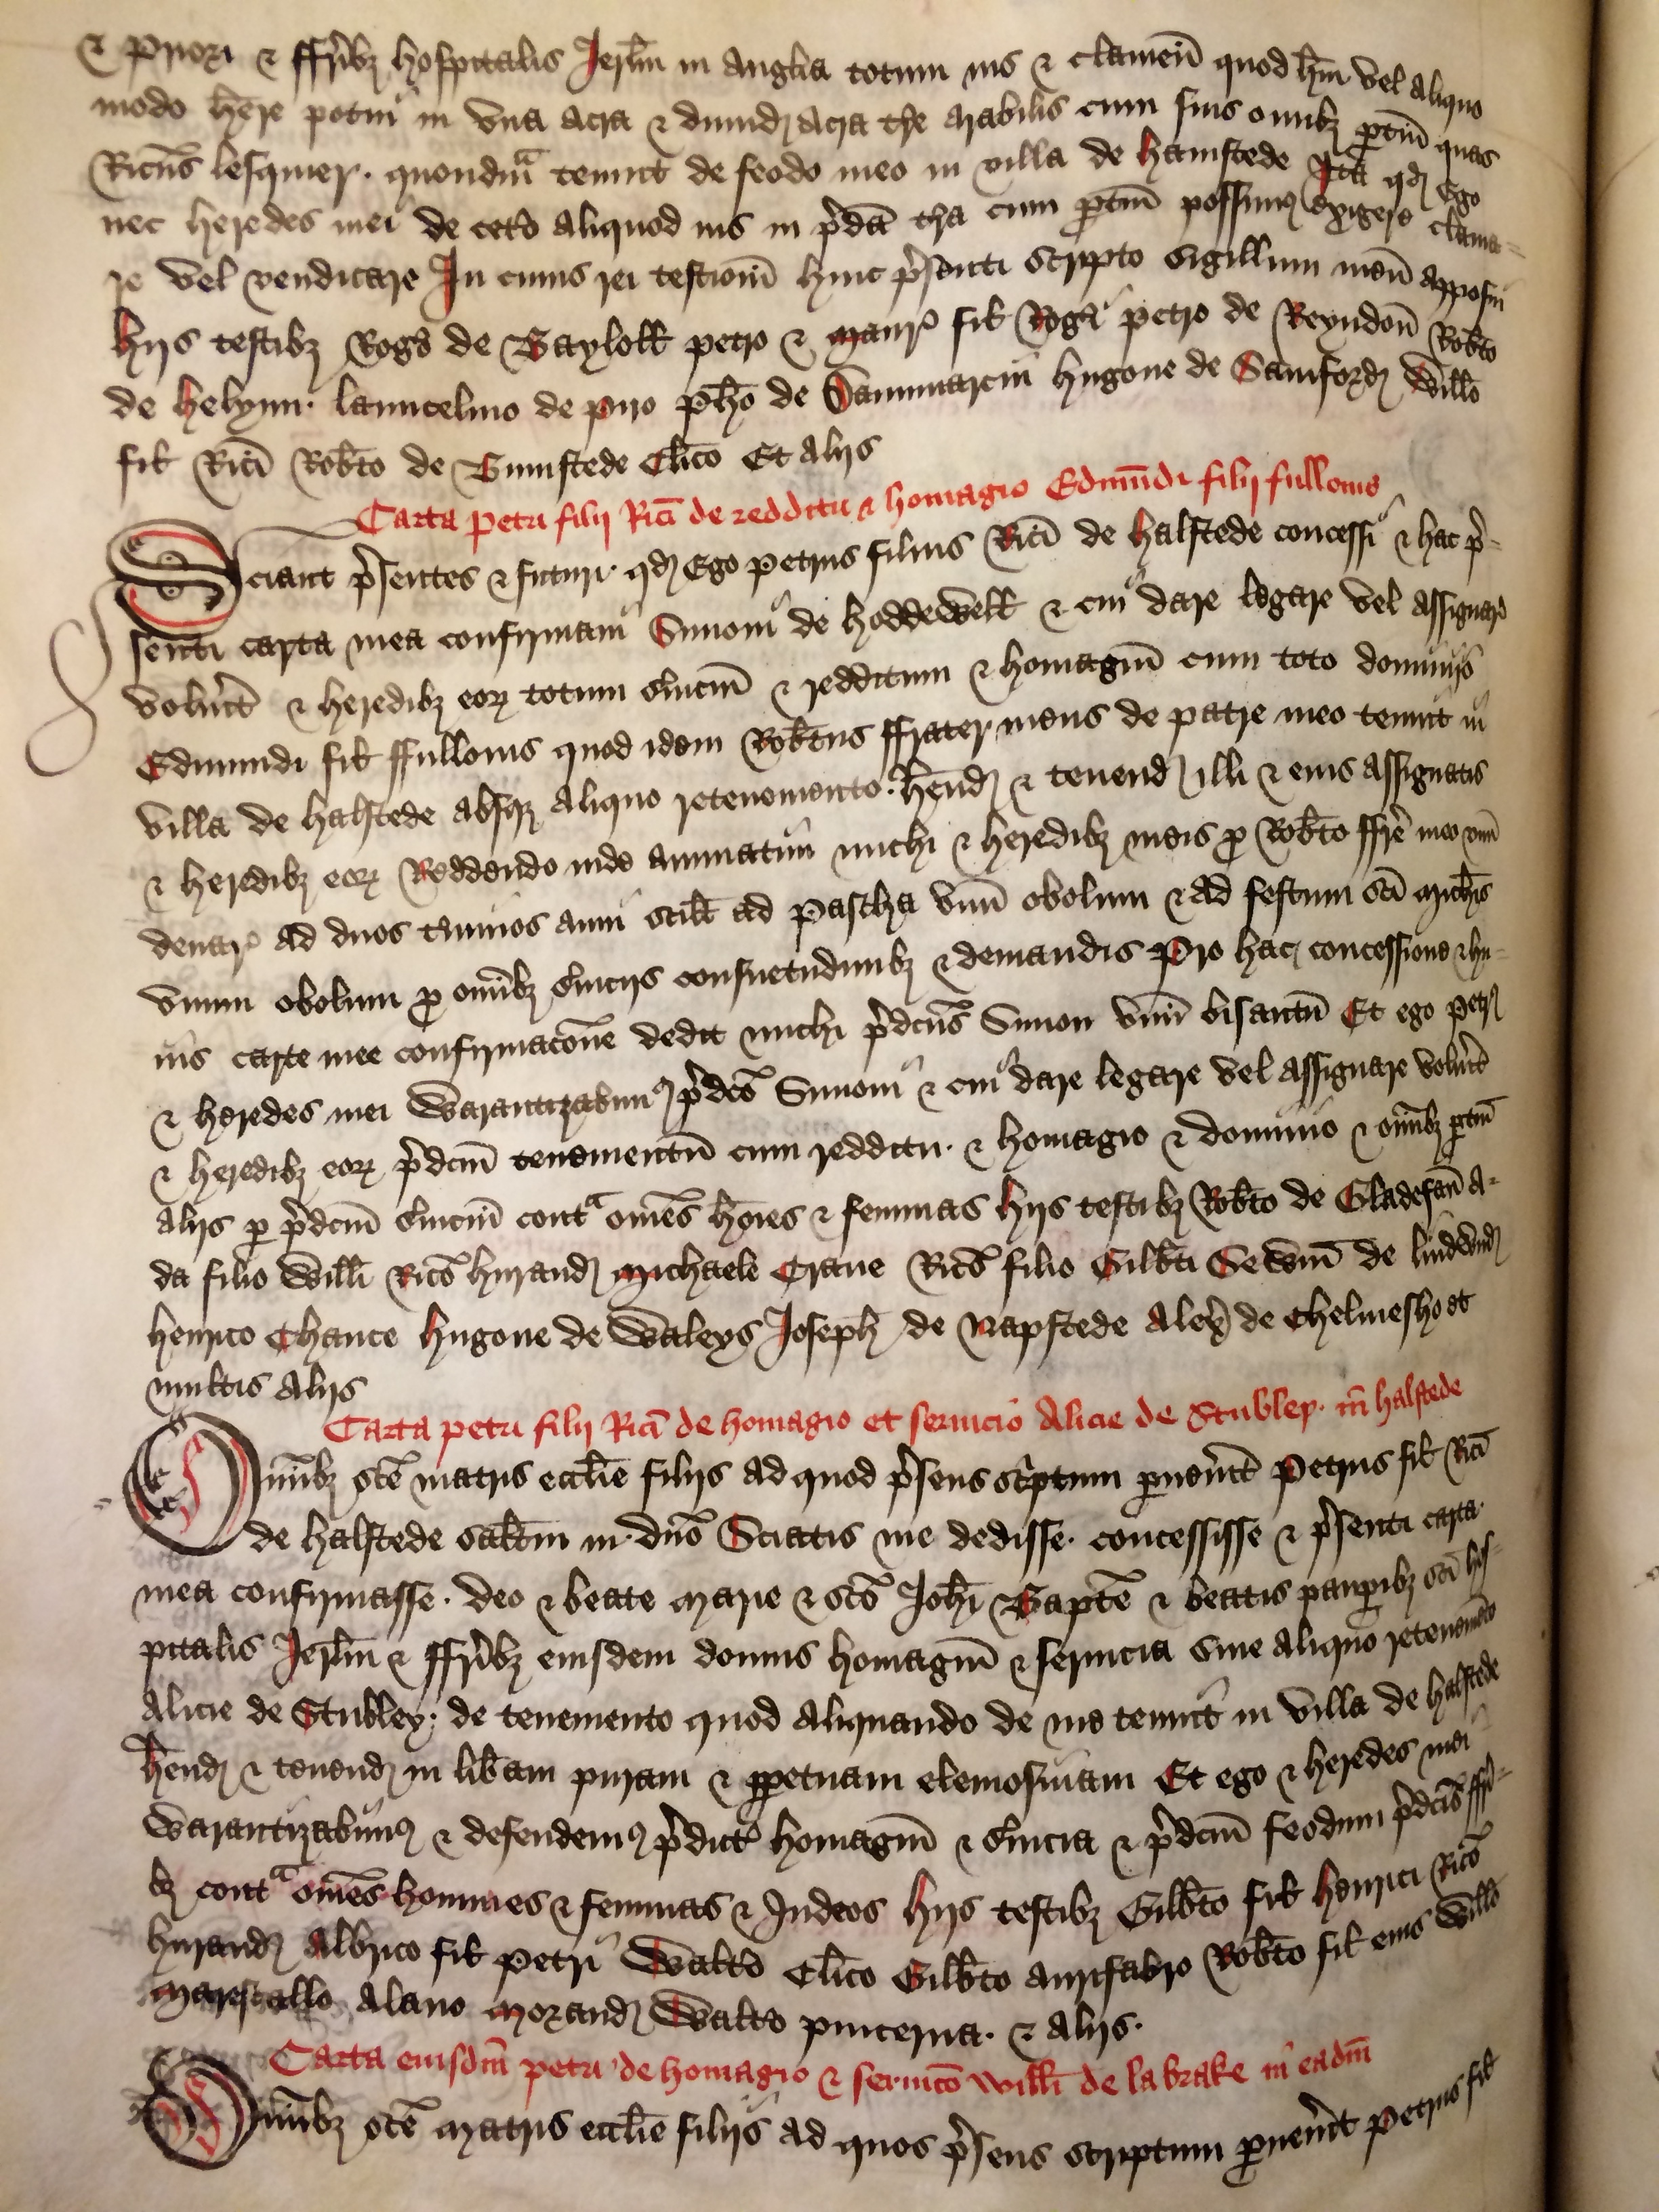 & Priori & ffrīb3 hospitalis Jerlm̄ in Anglia totum ius & clameū quod hūi vel aliquo
modo hēre potui in vna acra & dimid acra tre arabilis cum suis omnib3 ꝑtin̄ quas
Ricūs lesquier. quondm̄ tenuit de feodo meo in villa de hamstede Ita qd Ego
nec heredes mei de ceto aliquod ius in p̄dca tra cum ꝑtin̄ possimus exigere clama-
re vel vendicare In cuius rei testiom̄ huic p̄senti scripto sigillum meū apposui
hijs testib3 Roḡo de Bayloll petro & maur̄ fil Roḡi petro de Reyndon̄ Rob̄to
de helyun. launcelino de piro ph̄o de Dammarcin hugone de Samford Willo
fil Rici Rob̄to de Bumstede Clīco Et alijs
Carta petri filij Rici de redditu & homagio Edmūdi filij fullonis
Sciant p̄sentes & futuri. qd Ego petrus filius Rici de halstede concessi & hac p̄-
senti carta mea confirmaui Simoni de hoddewell & cui dare legare vel assignare
volūit & heredib3 eorꝝ totum s̄uiciū & redditum & homagiū cum toto dominijs
Edmundi fil ffullonis quod idem Rob̄tus ffrater meus de patre meo tenuit in
villa de halstede absq3 aliquo retenemento. h̄end & tenend illi & eius assignatis
& heredib3 eorꝝ Reddendo inde annuatim michi & heredib3 meis ꝓ Rob̄to ffrē meo vnū
denar̄ ad duos t̄minos anni scil̄t ad pascha vnū obolum & ad festum sc̄i Mich̄is
vnum obolum ꝓ omib3 s̄uicijs consuetudinib3 & demandis Pro hac concessione & hu-
ius carte mee confirmacōne dedit michi p̄dcūs Simon vnū bisantū Et ego petrus
& heredes mei Warantizabimus p̄dcō Simoni & cui dare legare vel assignare volūit
& heredib3 eorꝝ p̄dcm̄ tenementū cum redditu. & homagio & dominio & omib3 ꝑtin̄
alijs ꝑ p̄dcm̄ s̄uiciū contᵃ omēs hōies & feminas hijs testib3 Rob̄to de Gladefan̄ a-
da filio Willi Ricō hurand Michaele Crane Ricō filio Gilb̄ti Sewin̄ de lindwud
henrico Chance hugone de Waleys Joseph de Napstede Alex̄ de Chelmesho et
multis alijs
Carta petri filij Rici de homagio et seruicio Alicie de Stubley. in halstede
Omib3 sc̄e matris eccl̄ie filijs ad quod p̄sens sc̄ptum ꝑuen̄it Petrus fil Rici
de halstede salt̄m in. dn̄o Sciatis me dedisse. concessisse & p̄senti carta
mea confirmasse. deo & beate Marie & sc̄o Joh̄i Bapt̄e & beatis pauꝑib3 sc̄i hos-
pitalis Jerlm̄ & ffrīb3 eiusdem domus homagiū & seruicia sine aliquo retenemēto
Alicie de Stubley. de tenemento quod aliquando de me tenuit in villa de halstede
h̄end & tenend in lib̄am puram & ꝑpetuam elemosinam Et ego & heredes mei
Warantizabimus & defendemus p̄dictᵒ homagiū & s̄uicia & p̄dcm̄ feodum p̄dcīs ffrī-
b3 contᵃ omēs homines & feminas & Judeos hijs testib3 Gilb̄to fil henrici Ricō
hurand Alb̄rico fil petri Walt̄o Clīco Gilb̄to aurifabro Rob̄to fil eius Willo
Marescallo Alano Morand Walt̄o pincerna. & alijs.
Carta eiusdm̄ petri de homagio & seruicō Willi de la brake in eadm̄
Omib3 sc̄e Matris eccl̄ie filijs ad quos p̄sens scriptum ꝑuen̄it Petrus fil